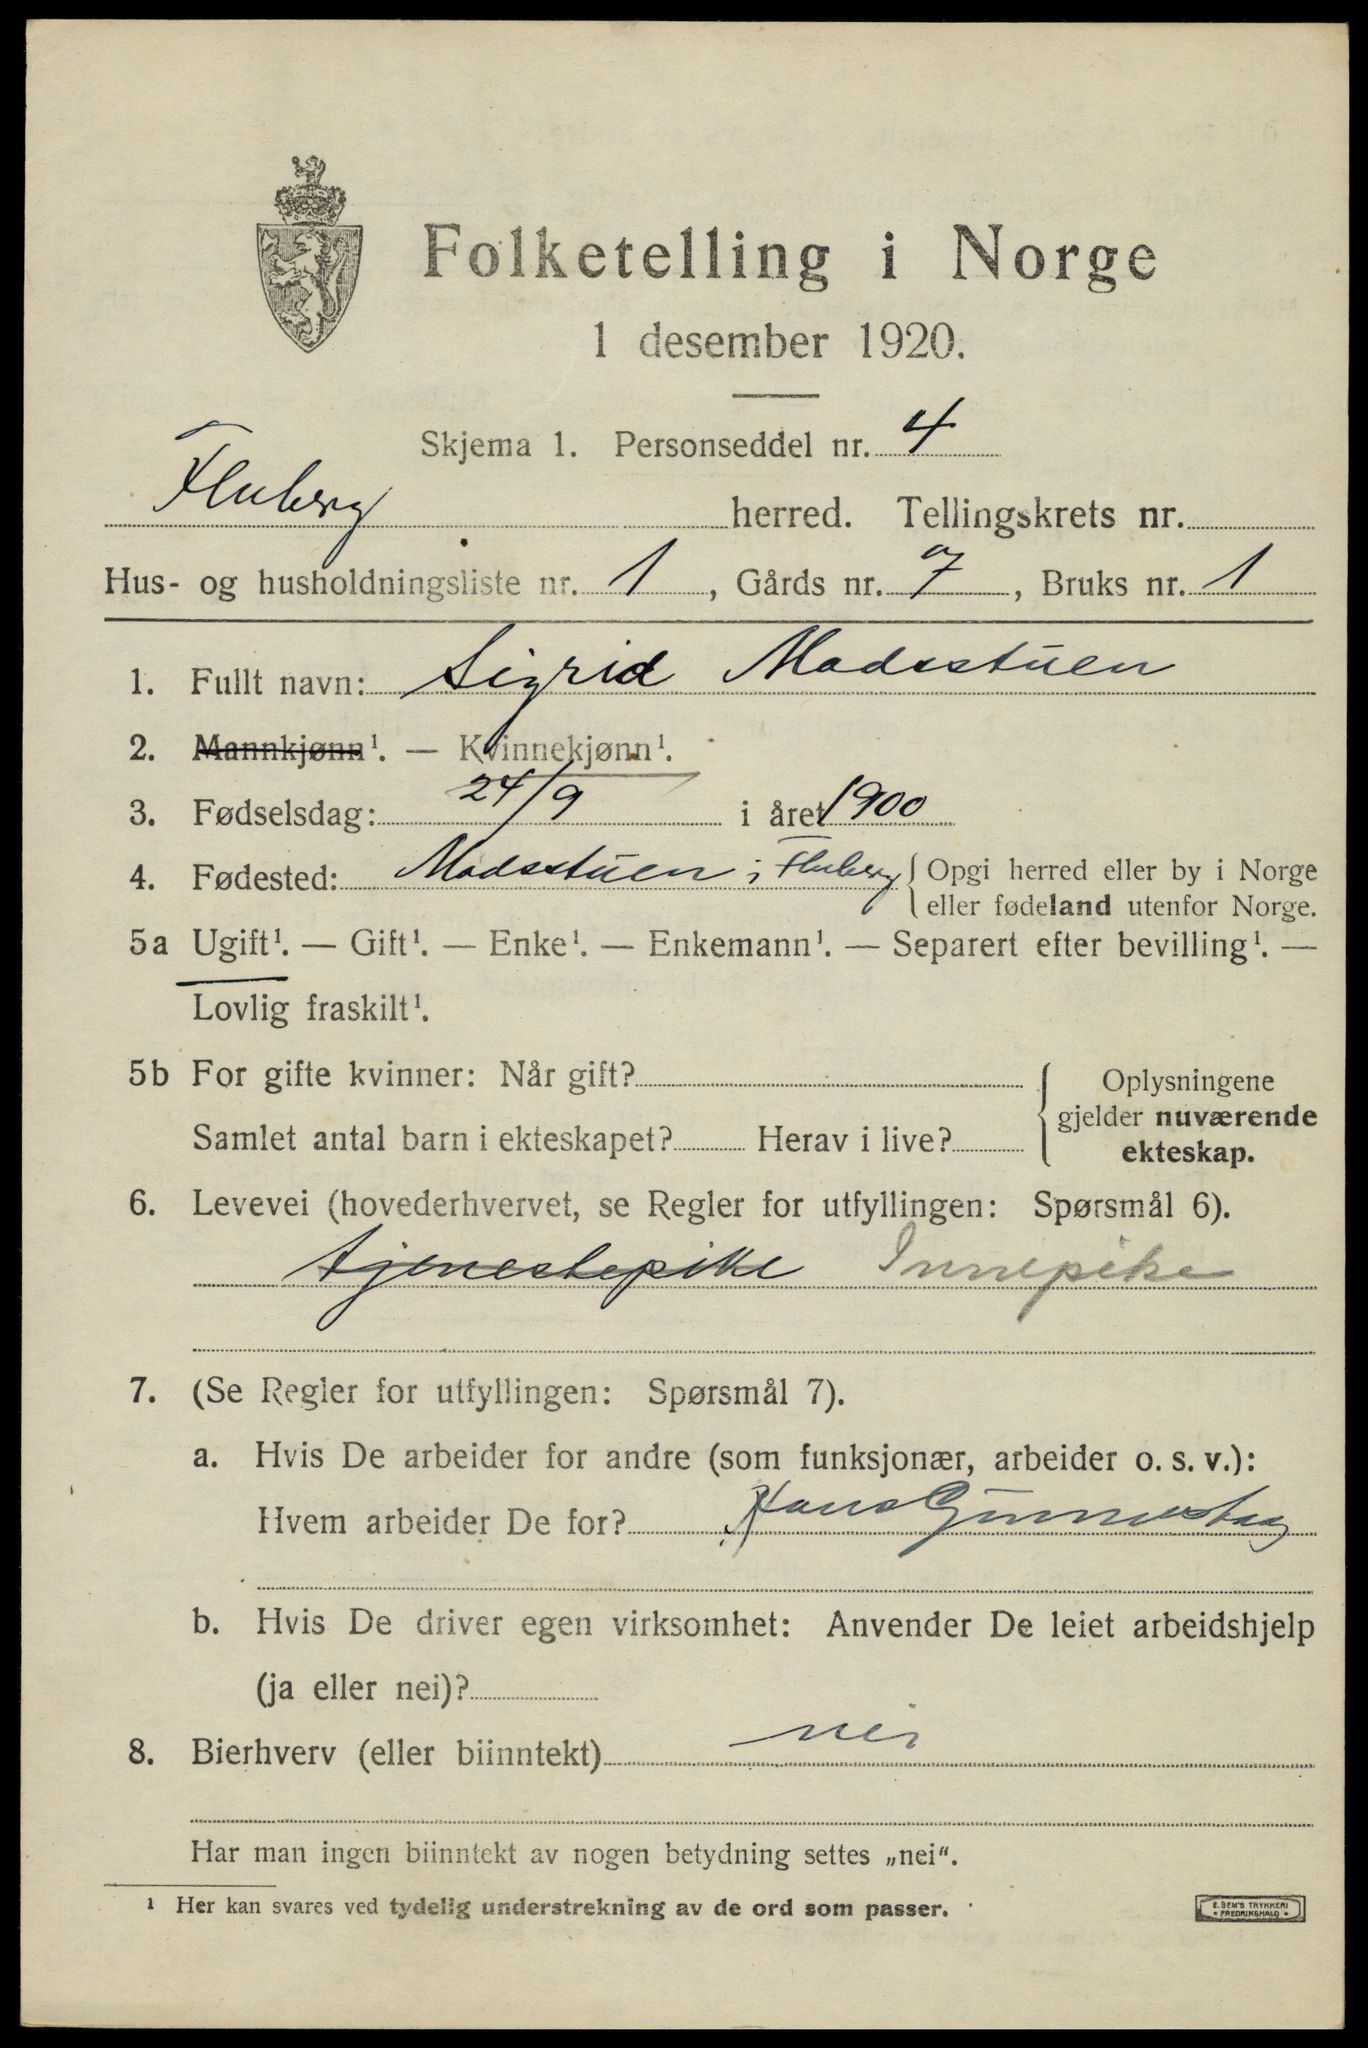 Folketelling i Norge
1 desember 1920.
Skjema 1. Personseddel nr. 4
Fluberg herred. Tellingskrets nr.
Hus- og husholdningsliste nr. 1, Gårds nr. 7, Bruks nr. 1
1. Fullt navn: Sigrid Madsstuen
2. Mannkjønn¹. — Kvinnekjønn¹.
3. Fødselsdag: 24/9 i året 1900
4. Fødested: Madsstuen i Fluberg { Opgi herred eller by i Norge
eller fødeland utenfor Norge.
5a Ugift¹. — Gift¹. — Enke¹. — Enkemann¹. — Separert efter bevilling¹. —
Lovlig fraskilt¹.
5b For gifte kvinner: Når gift? { Oplysningene
gjelder nuværende
Samlet antal barn i ekteskapet? Herav i live?
ekteskap.
6. Levevei (hovederhvervet, se Regler for utfyllingen: Spørsmål 6).
tjenestepike Innepike
7. (Se Regler for utfyllingen: Spørsmål 7).
a. Hvis De arbeider for andre (som funksjonær, arbeider o. s. v.):
Hvem arbeider De for? Hans
b. Hvis De driver egen virksomhet: Anvender De leiet arbeidshjelp
(ja eller nei)?
8. Bierhverv (eller biinntekt) nei
Har man ingen biinntekt av nogen betydning settes „nei“.
¹ Her kan svares ved tydelig understrekning av de ord som passer.
E. SEM'S TRYKKERI
* FREDRIKSHALD *